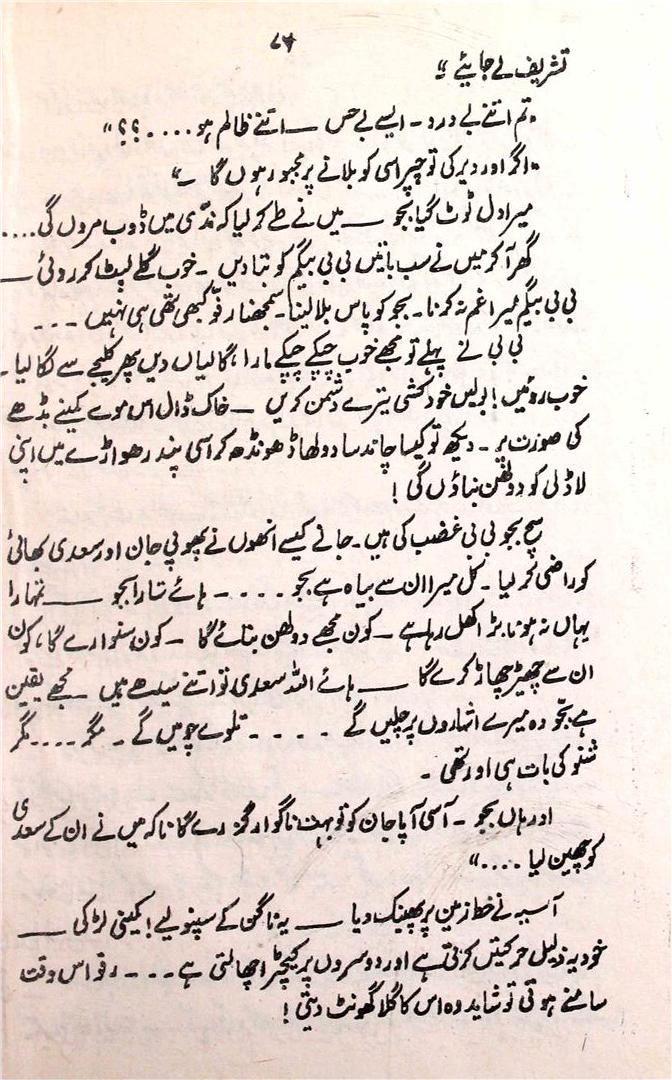 ۷۸
تشریف لے جایئے ۔"
"تم اتنے بے درد ۔ ایسے بے حس ــــ اتنے ظالم ہو ۔۔۔۔ ؟؟"
"اگر اور دیر کی تو چپراسی کو بلانے پر مجبور ہوں گا ۔"
میرا دل ٹوٹ گیا بجو ــــ میں نے طے کر لیا کہ ندّی میں ڈوب مروں گی ۔۔۔۔
گھر آ کر میں نے سب باتیں بی بی بیگم کو بتا دیں ۔ خوب گلے لپٹ کر روئی ــــ
بی بی بیگم میرا غم نہ کرنا ۔ بجو کو پاس بلا لینا ۔ سمجھنا رفّو کبھی تھی ہی نہیں ۔۔۔
بی بی نے پہلے تو مجھے خوب چپکے چپکے مارا، گالیاں دیں پھر کلیجے سے لگا لیا ۔
خوب روئیں! بولیں خودکشی تیرے دشمن کریں ــ خاک ڈال اس موے کمینے بڈھے
کی صورت پر ۔ دیکھ تو کیسا چاند سا دولھا ڈھونڈھ کر اسی پندرھواڑے میں اپنی
لاڈلی کو دولھن بناؤں گی!
سچ بجو بی بی غضب کی ہیں ۔ جانے کیسے انھوں نے پھوپی جان اور سعدی بھائی
کو راضی کر لیا ۔ کل میرا ان سے بیاہ ہے بجو ۔۔۔۔ ہائے تارا بجو ــــ تمہارا
یہاں نہ ہونا بڑا کھل رہا ہے ــ کون مجھے دولھن بنائے گا ــ کون سنوارے گا، کون
ان سے چھیڑ چھاڑ کرے گا ــــ ہائے اللہ سعدی تو اتنے سیدھے ہیں ــ مجھے یقین
ہے بجّو وہ میرے اشاروں پر چلیں گے ۔۔۔۔ تلوے چومیں گے ۔ مگر ۔۔۔۔ مگر
شنو کی بات ہی اور تھی ۔
اور ہاں بجو ۔ آسی آپا جان کو تو بہت ناگوار گزرے گا نا کہ میں نے ان کے سعدی
کو چھین لیا ۔۔۔۔"
آسیہ نے خط زمین پر پھینک دیا ــــ یہ ناگن کے سپنولیے! کمینی لڑکی ــــ
خود یہ ذلیل حرکتیں کرتی ہے اور دوسروں پر کیچڑ اچھالتی ہے ۔۔۔ رفو اس وقت
سامنے ہوتی تو شاید وہ اس کا گلا گھونٹ دیتی!